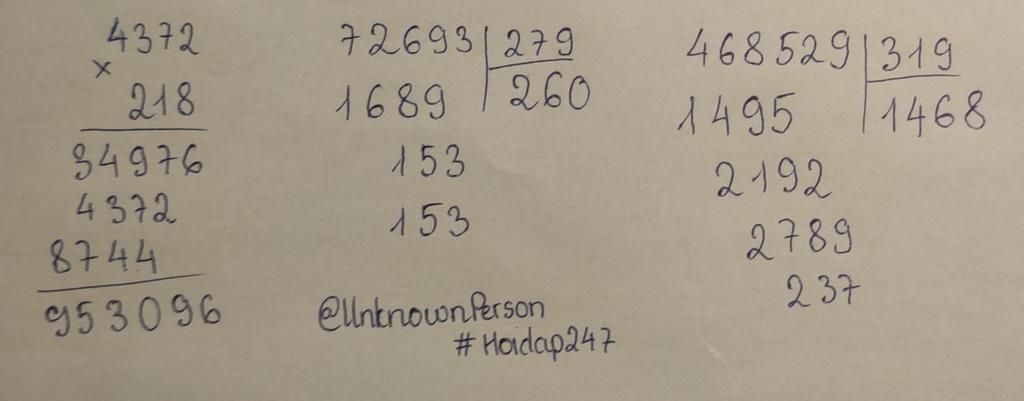 4372
×
218
34976
4372
8744
953096
72693 279
1689 260
153
153
468529 319
1495 1468
2192
2789
237
@UnknownPerson
#Hoidap247